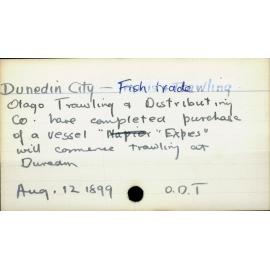 Dunedin City – Fish trade Trawling
Otago Trawling & Distributing
Co. have completed purchase
of a vessel "Napier" "Express"
will commence trawling at
Dunedin
Aug. 12 1899 O.D.T